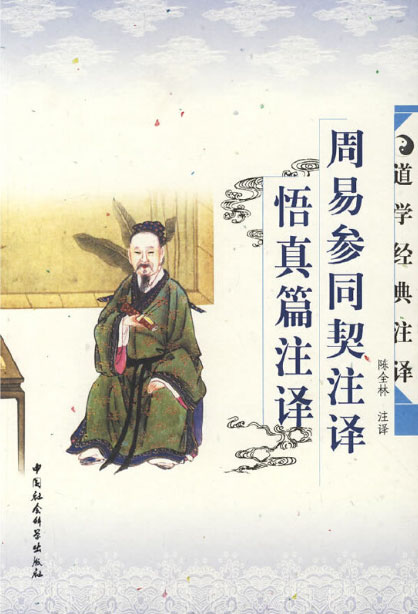 道学经典注译
周易参同契注译
悟真篇注译
陈全林 注译
中国社会科学出版社